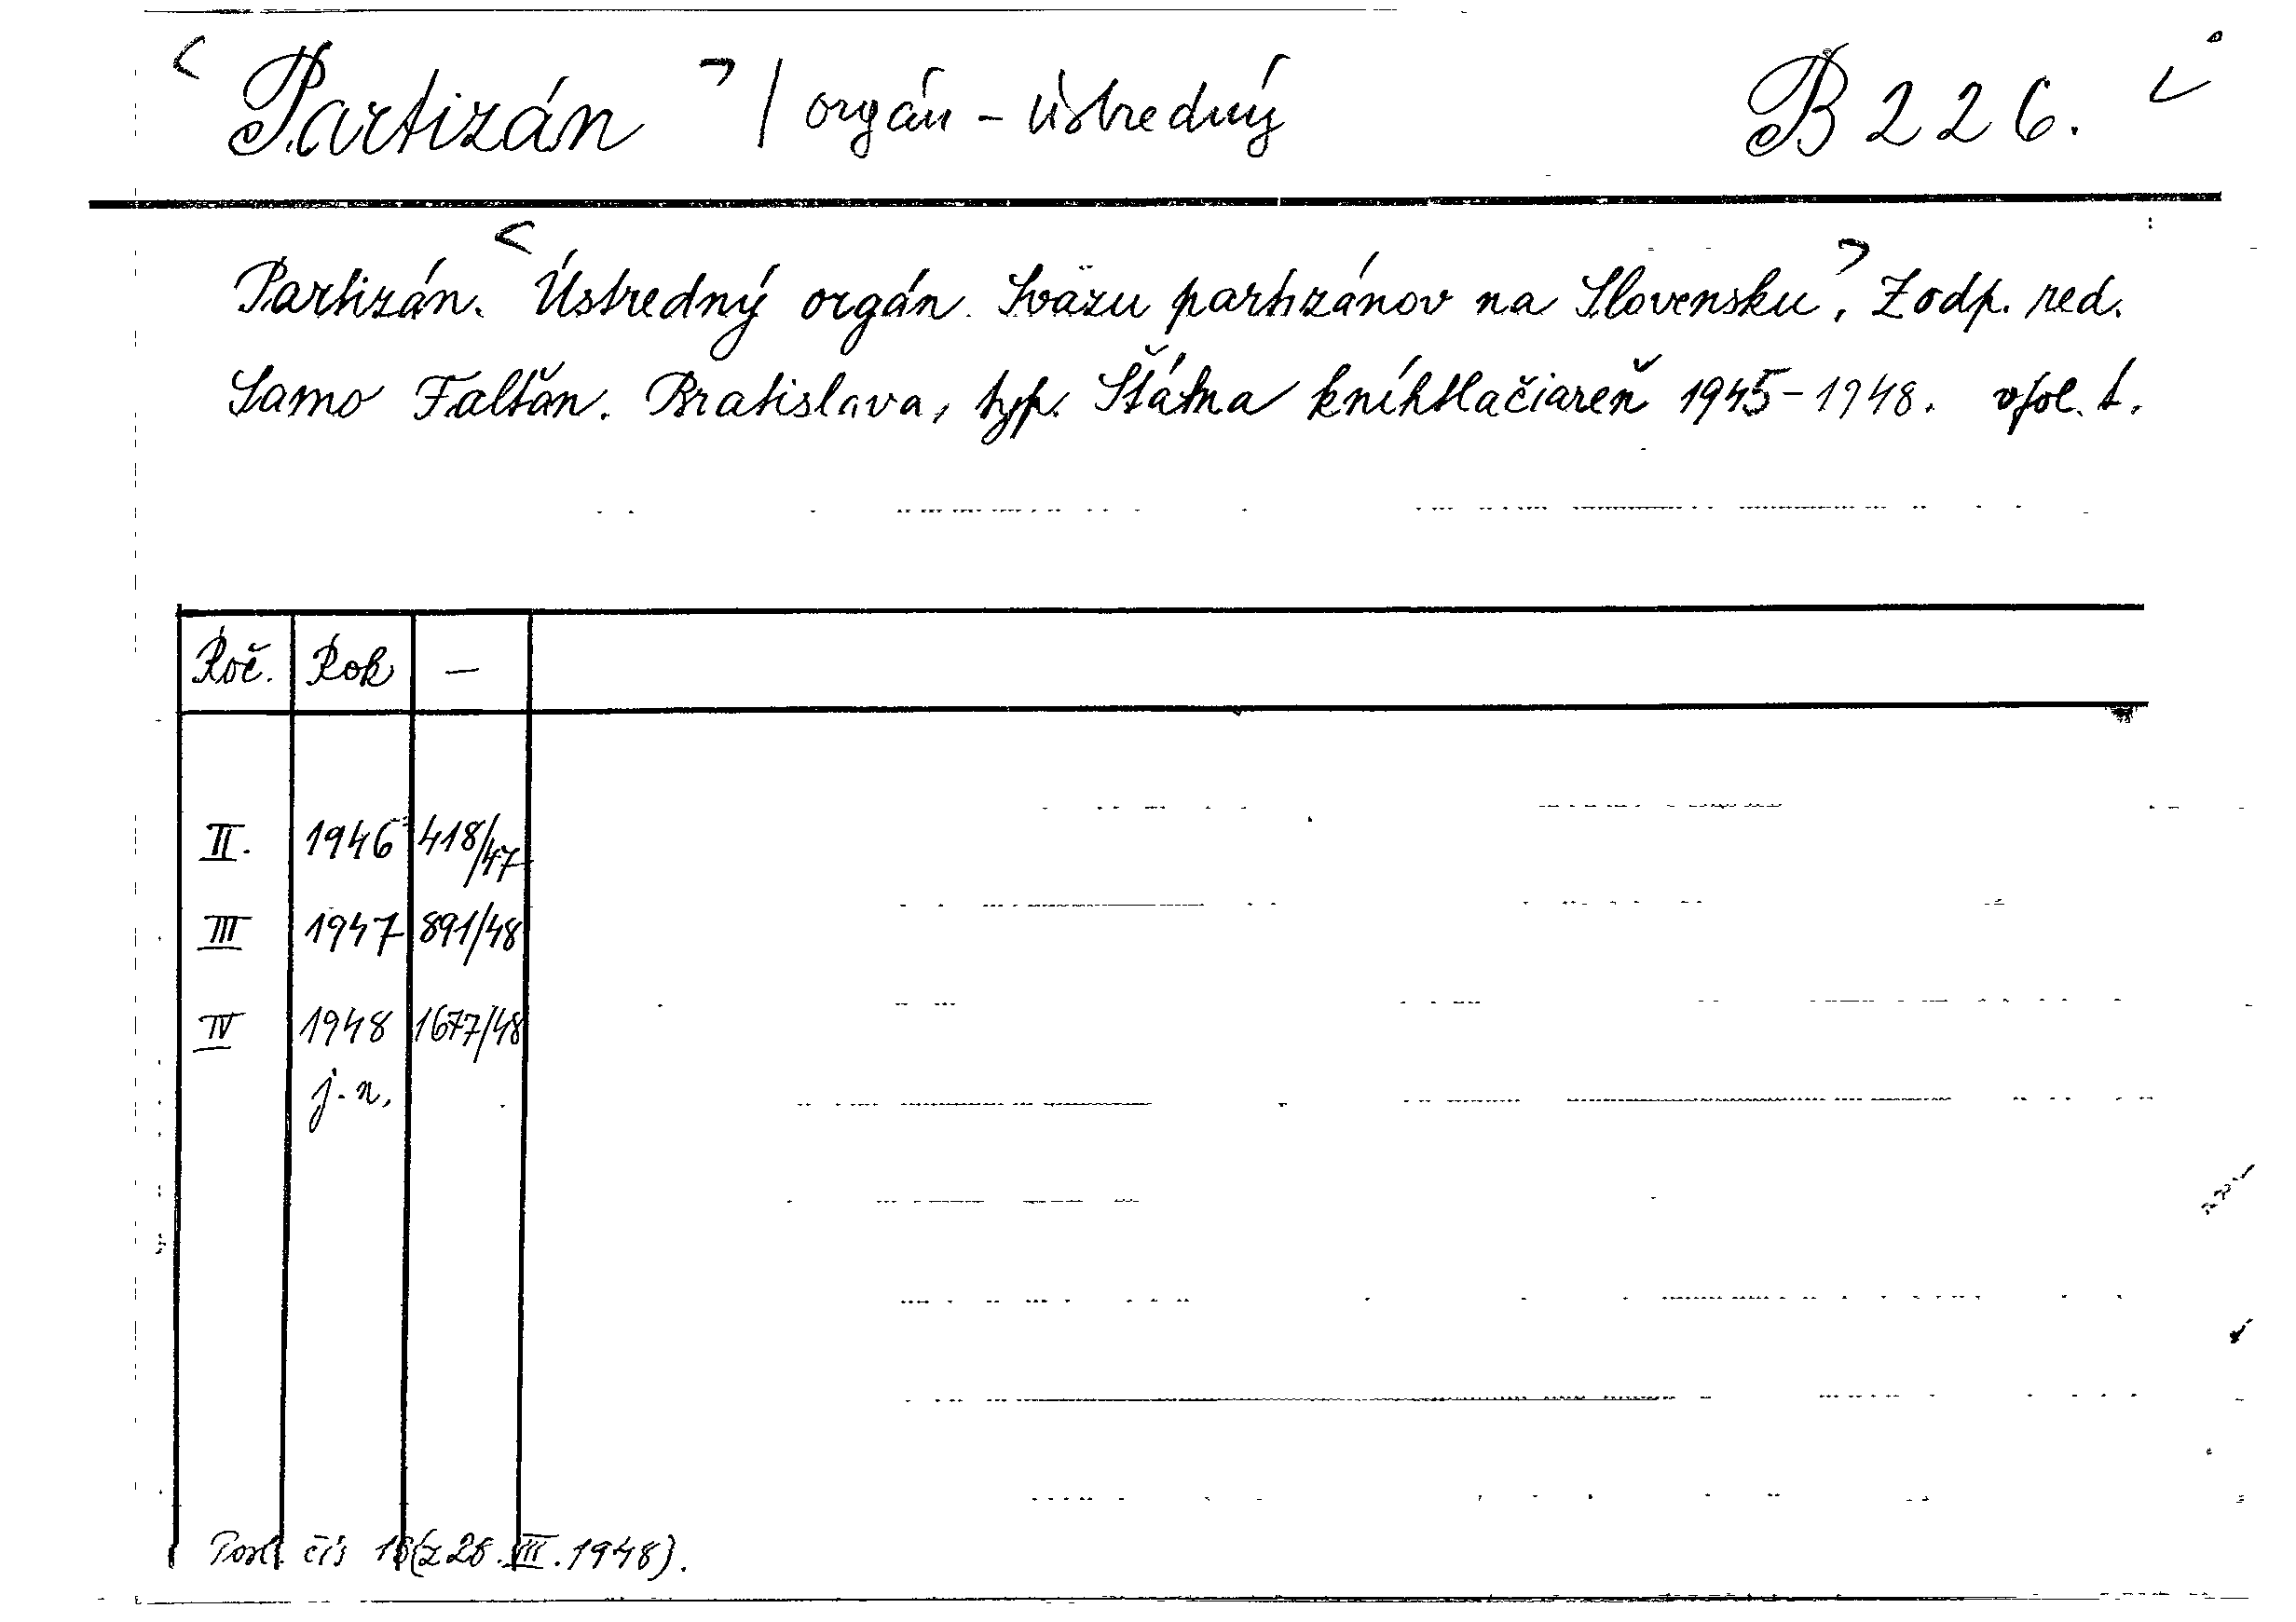 < Partizán > / orgán – ústredný B 226.
Partizán. <Ústredný orgán Sväzu partizánov na Slovensku>. Zodp. red.
Samo Falťan. Bratislava, typ. Štátna kníhtlačiareň 1945–1948. vfol. t.
Roč. Rok –
II. 1946 418/47
III 1947 891/48
IV 1948 1677/48
j. n.
Posl. čís (z 28. 1948).